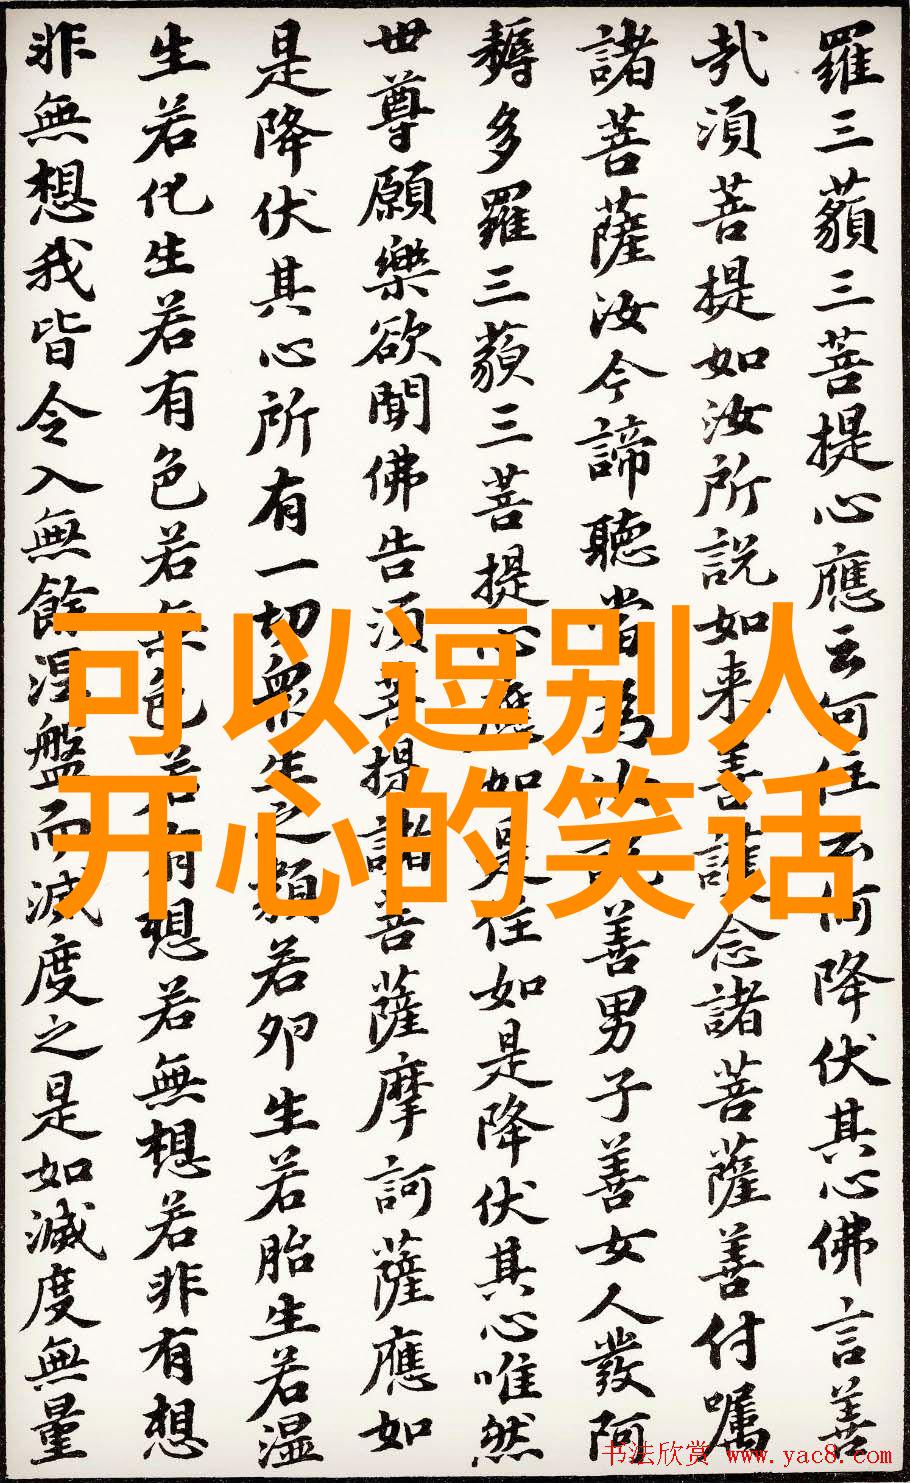 羅三藐三菩提心應云何住云何降伏其心佛言善
哉須菩提如汝所説如来善護念諸菩薩善付嘱
諸菩薩汝今諦聽當為汝説善男子善女人發阿
耨多羅三藐三菩提心應如是住如是降伏其心唯然
世尊願樂欲聞佛告須菩提諸菩薩摩訶薩應如
是降伏其心所有一切衆生之類若卵生若胎生若温
生若化生若有色若无色若有想若無想若非有想
非無想我皆令入無餘涅盤而滅度之是如滅度無量
可以逗别人
开心的笑话
书法欣赏 www.yac8.com